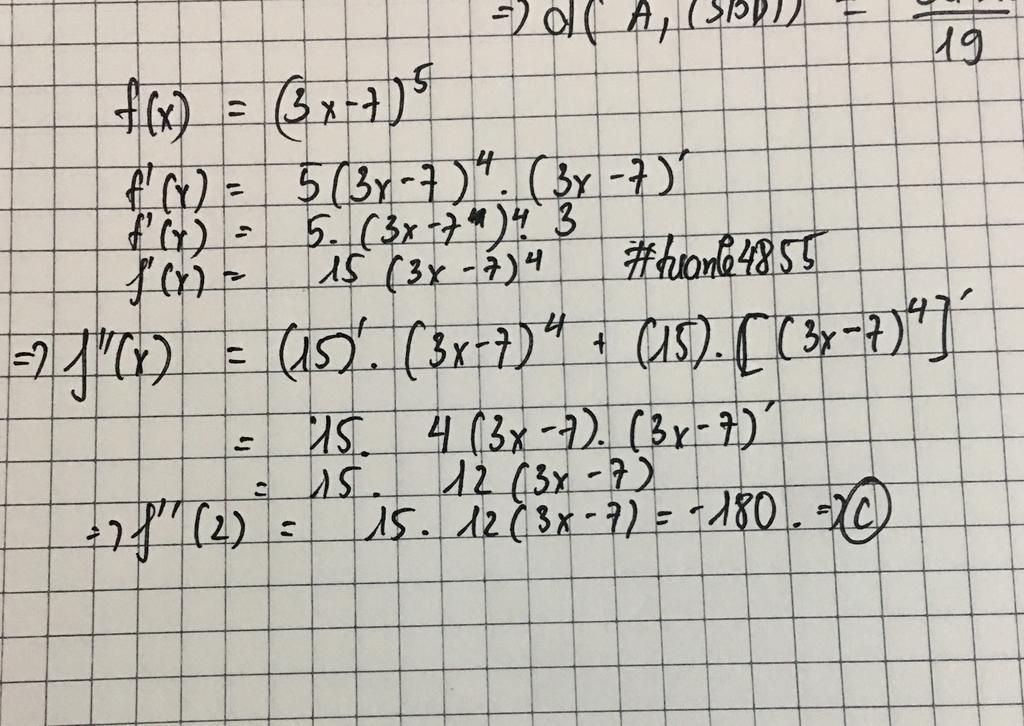 => d( A, (SBD)) =
19
f(x) = (3x-7)^5
f'(x) = 5(3x-7)^4. (3x-7)'
f'(x) = 5. (3x-7)^4. 3
f'(x) = 15 (3x-7)^4 #tuanle4855
=> f''(x) = (15)'. (3x-7)^4 + (15). [(3x-7)^4]'
= 15. 4(3x-7). (3x-7)'
= 15. 12(3x-7)
=> f''(2) = 15. 12(3x-7) = -180. => C